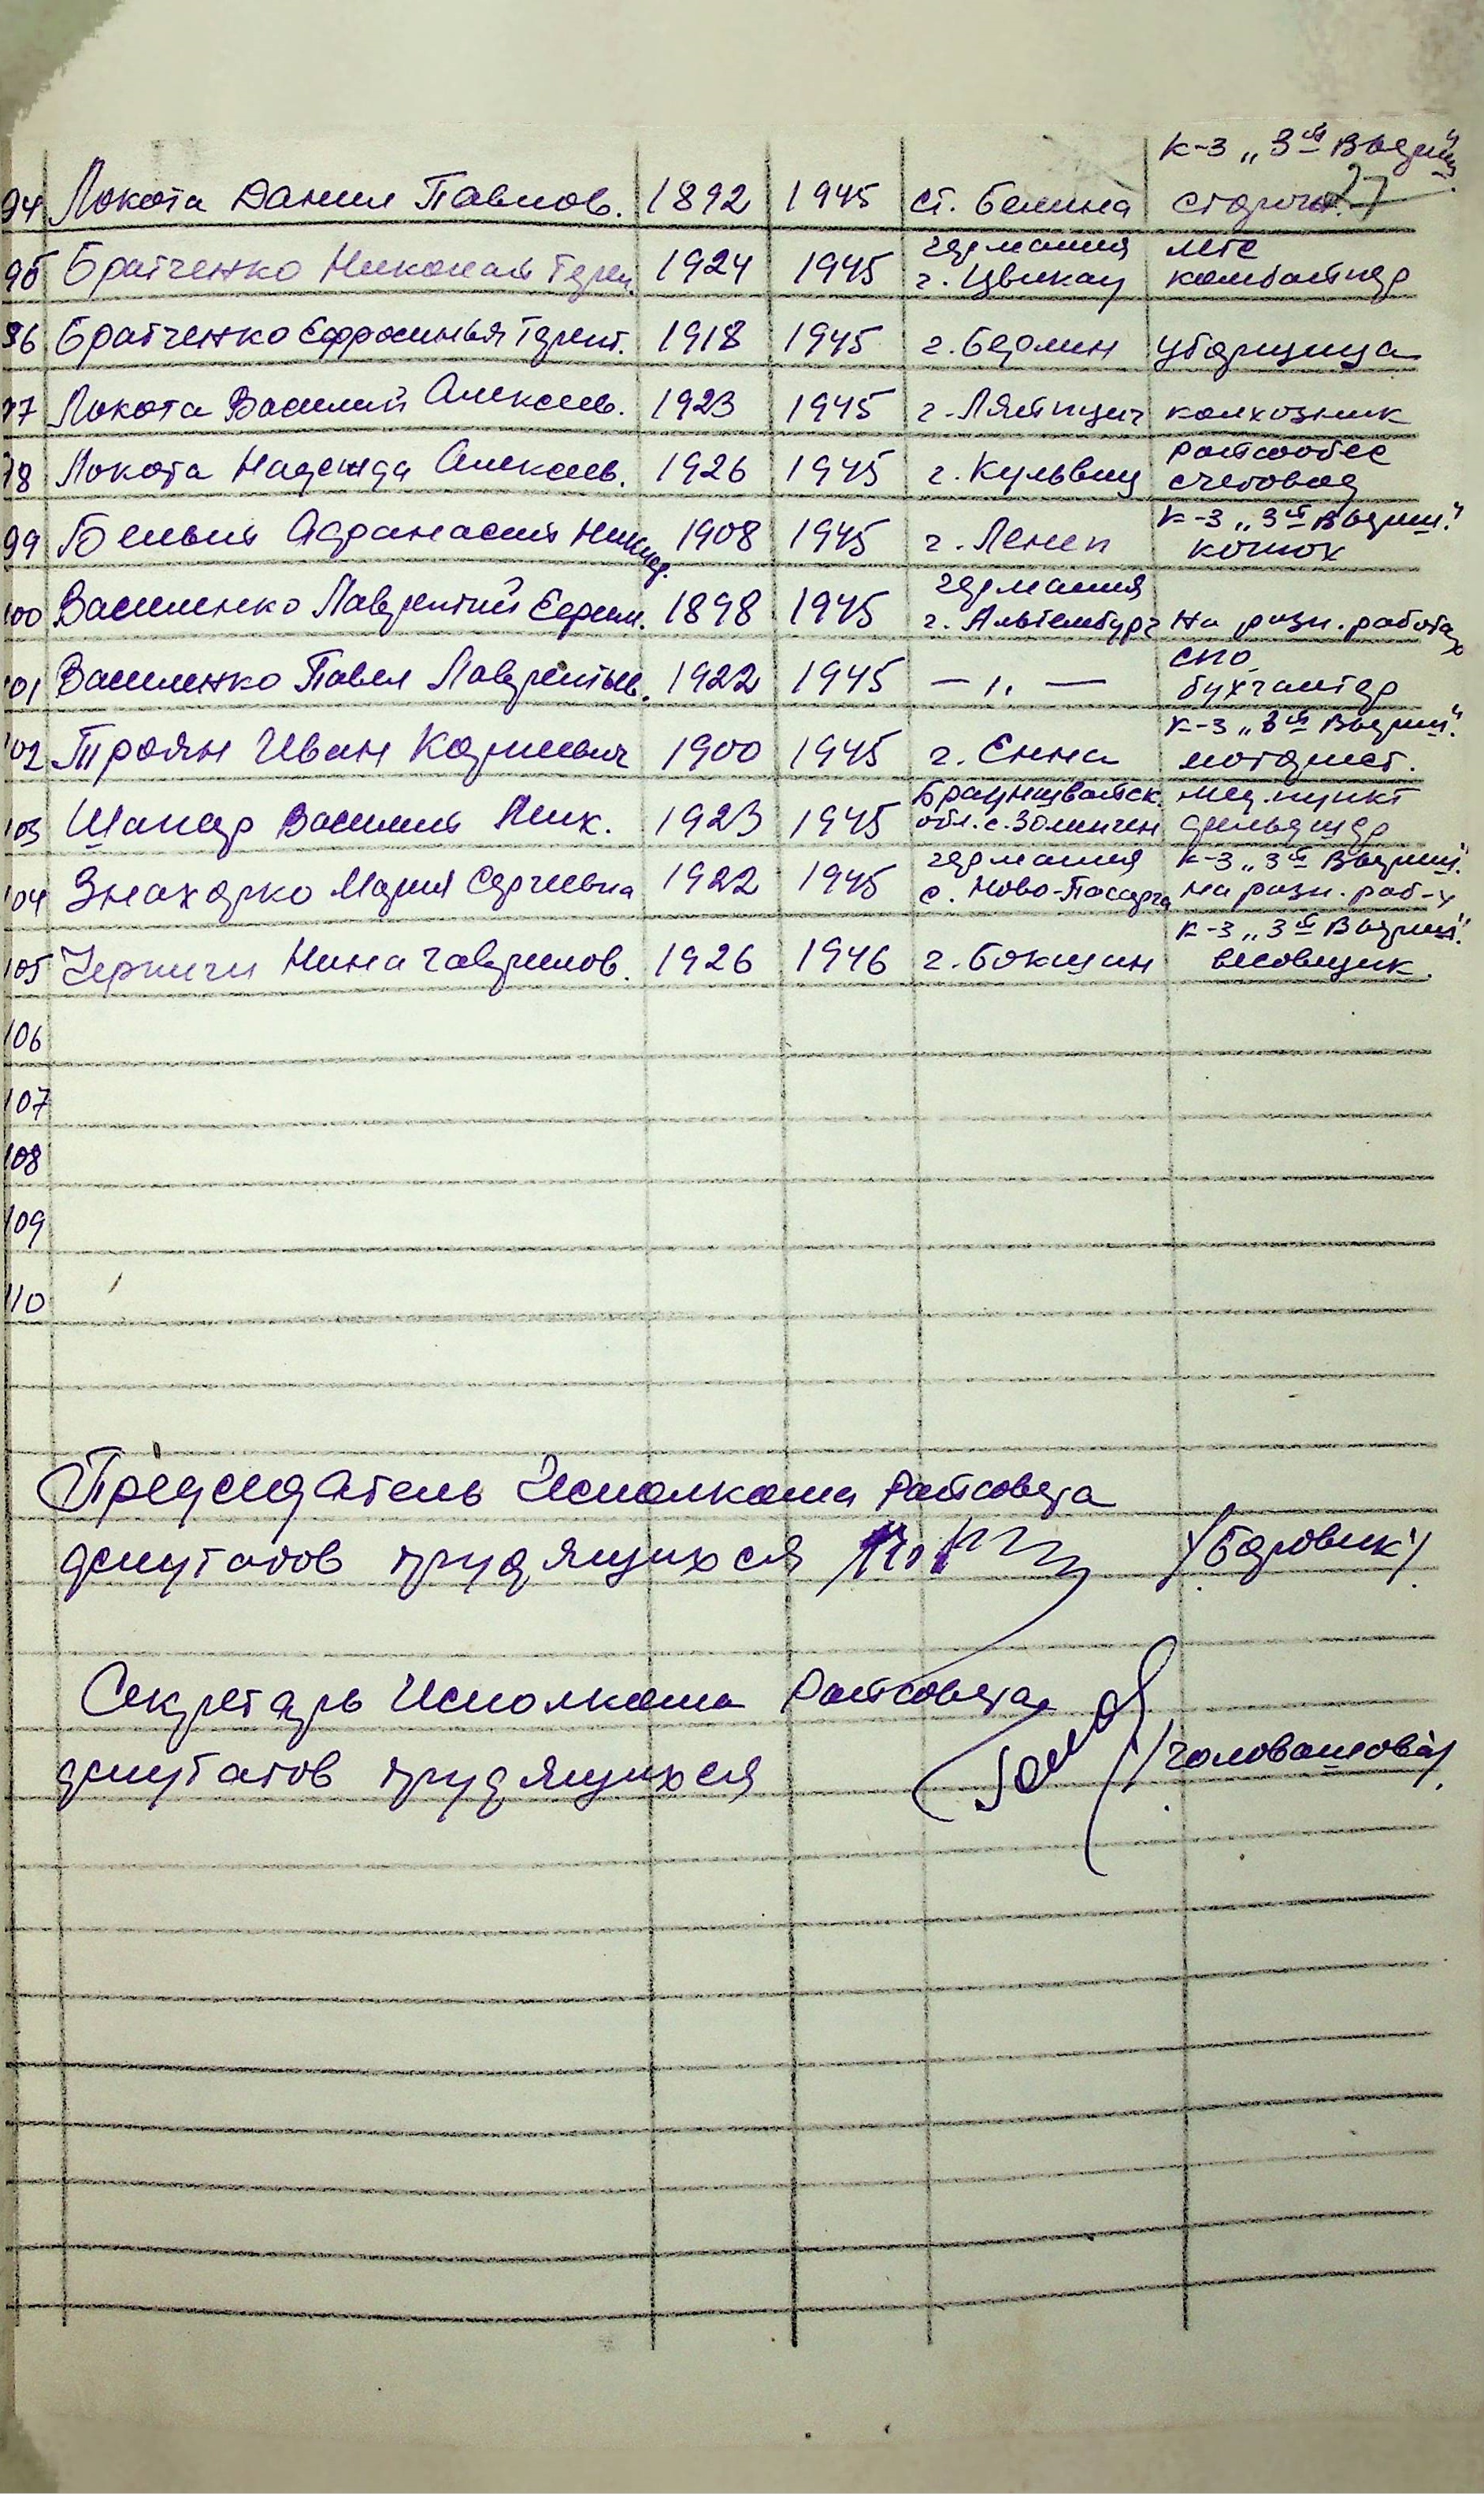 к-з „3ий Выриш."
27
94 Локота Данил Павлов. 1892 1945 ст. Белина сторож
германия МТС
95 Братченко Николай Терен. 1924 1945 г. Цвикау комбайнер
96 Братченко Ефросинья Терент. 1918 1945 г. Берлин уборщица
97 Локота Василий Алексеев. 1923 1945 г. Ляйпциг колхозник
райсобес
98 Локота Надежда Алексеев. 1926 1945 г. Кульвиц счетовод
к-з „3ий Выриш."
99 Белый Афанасий 1908 1945 г. Ленеп конюх
германия
100 Василенко Лаврентий Ефим. 1898 1945 г. Альтембург на разн. работах
СПО
101 Василенко Павел Лаврентьев. 1922 1945 — „ — бухгалтер
к-з „3ий Выриш."
102 Троян Иван Карпович 1900 1945 г. Енна моторист.
Брауншвайск. мед. пункт
103 Шапар Василий Ник. 1923 1945 обл. с. Золинген фельдшер
германия к-з „3ий Выриш."
104 Знахарко Мария Сергеевна 1922 1945 с. Ново-Посарга на разн. раб-х
к-з „3ий Выриш."
105 Нина Гаврилов. 1926 1946 г. Бокшин весовщик.
106
107
108
109
110
Председатель Исполкома Райсовета
депутатов трудящихся /Боровик/
Секретарь Исполкома Райсовета
депутатов трудящихся /Головашова/